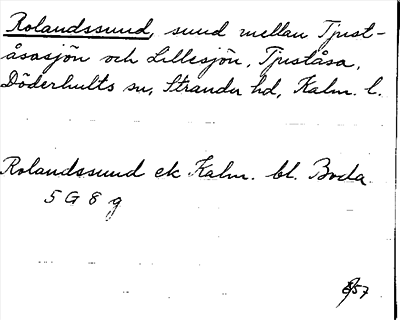 Rolandssund, sund mellan Tjust-
åsasjön och Lillesjön, Tjuståsa,
Döderhults sn, Stranda hd, Kalm. l.
Rolandssund ek Kalm. bl. Boda
5 G 8 g